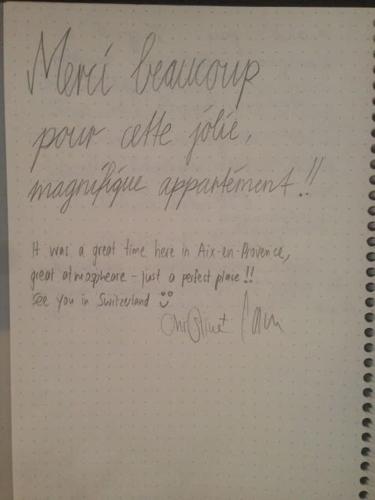 Merci beaucoup
pour cette jolie,
magnifique appartément!!
It was a great time here in Aix-en-Provence,
great atmospheare - just a perfect place!!
See you in Switzerland